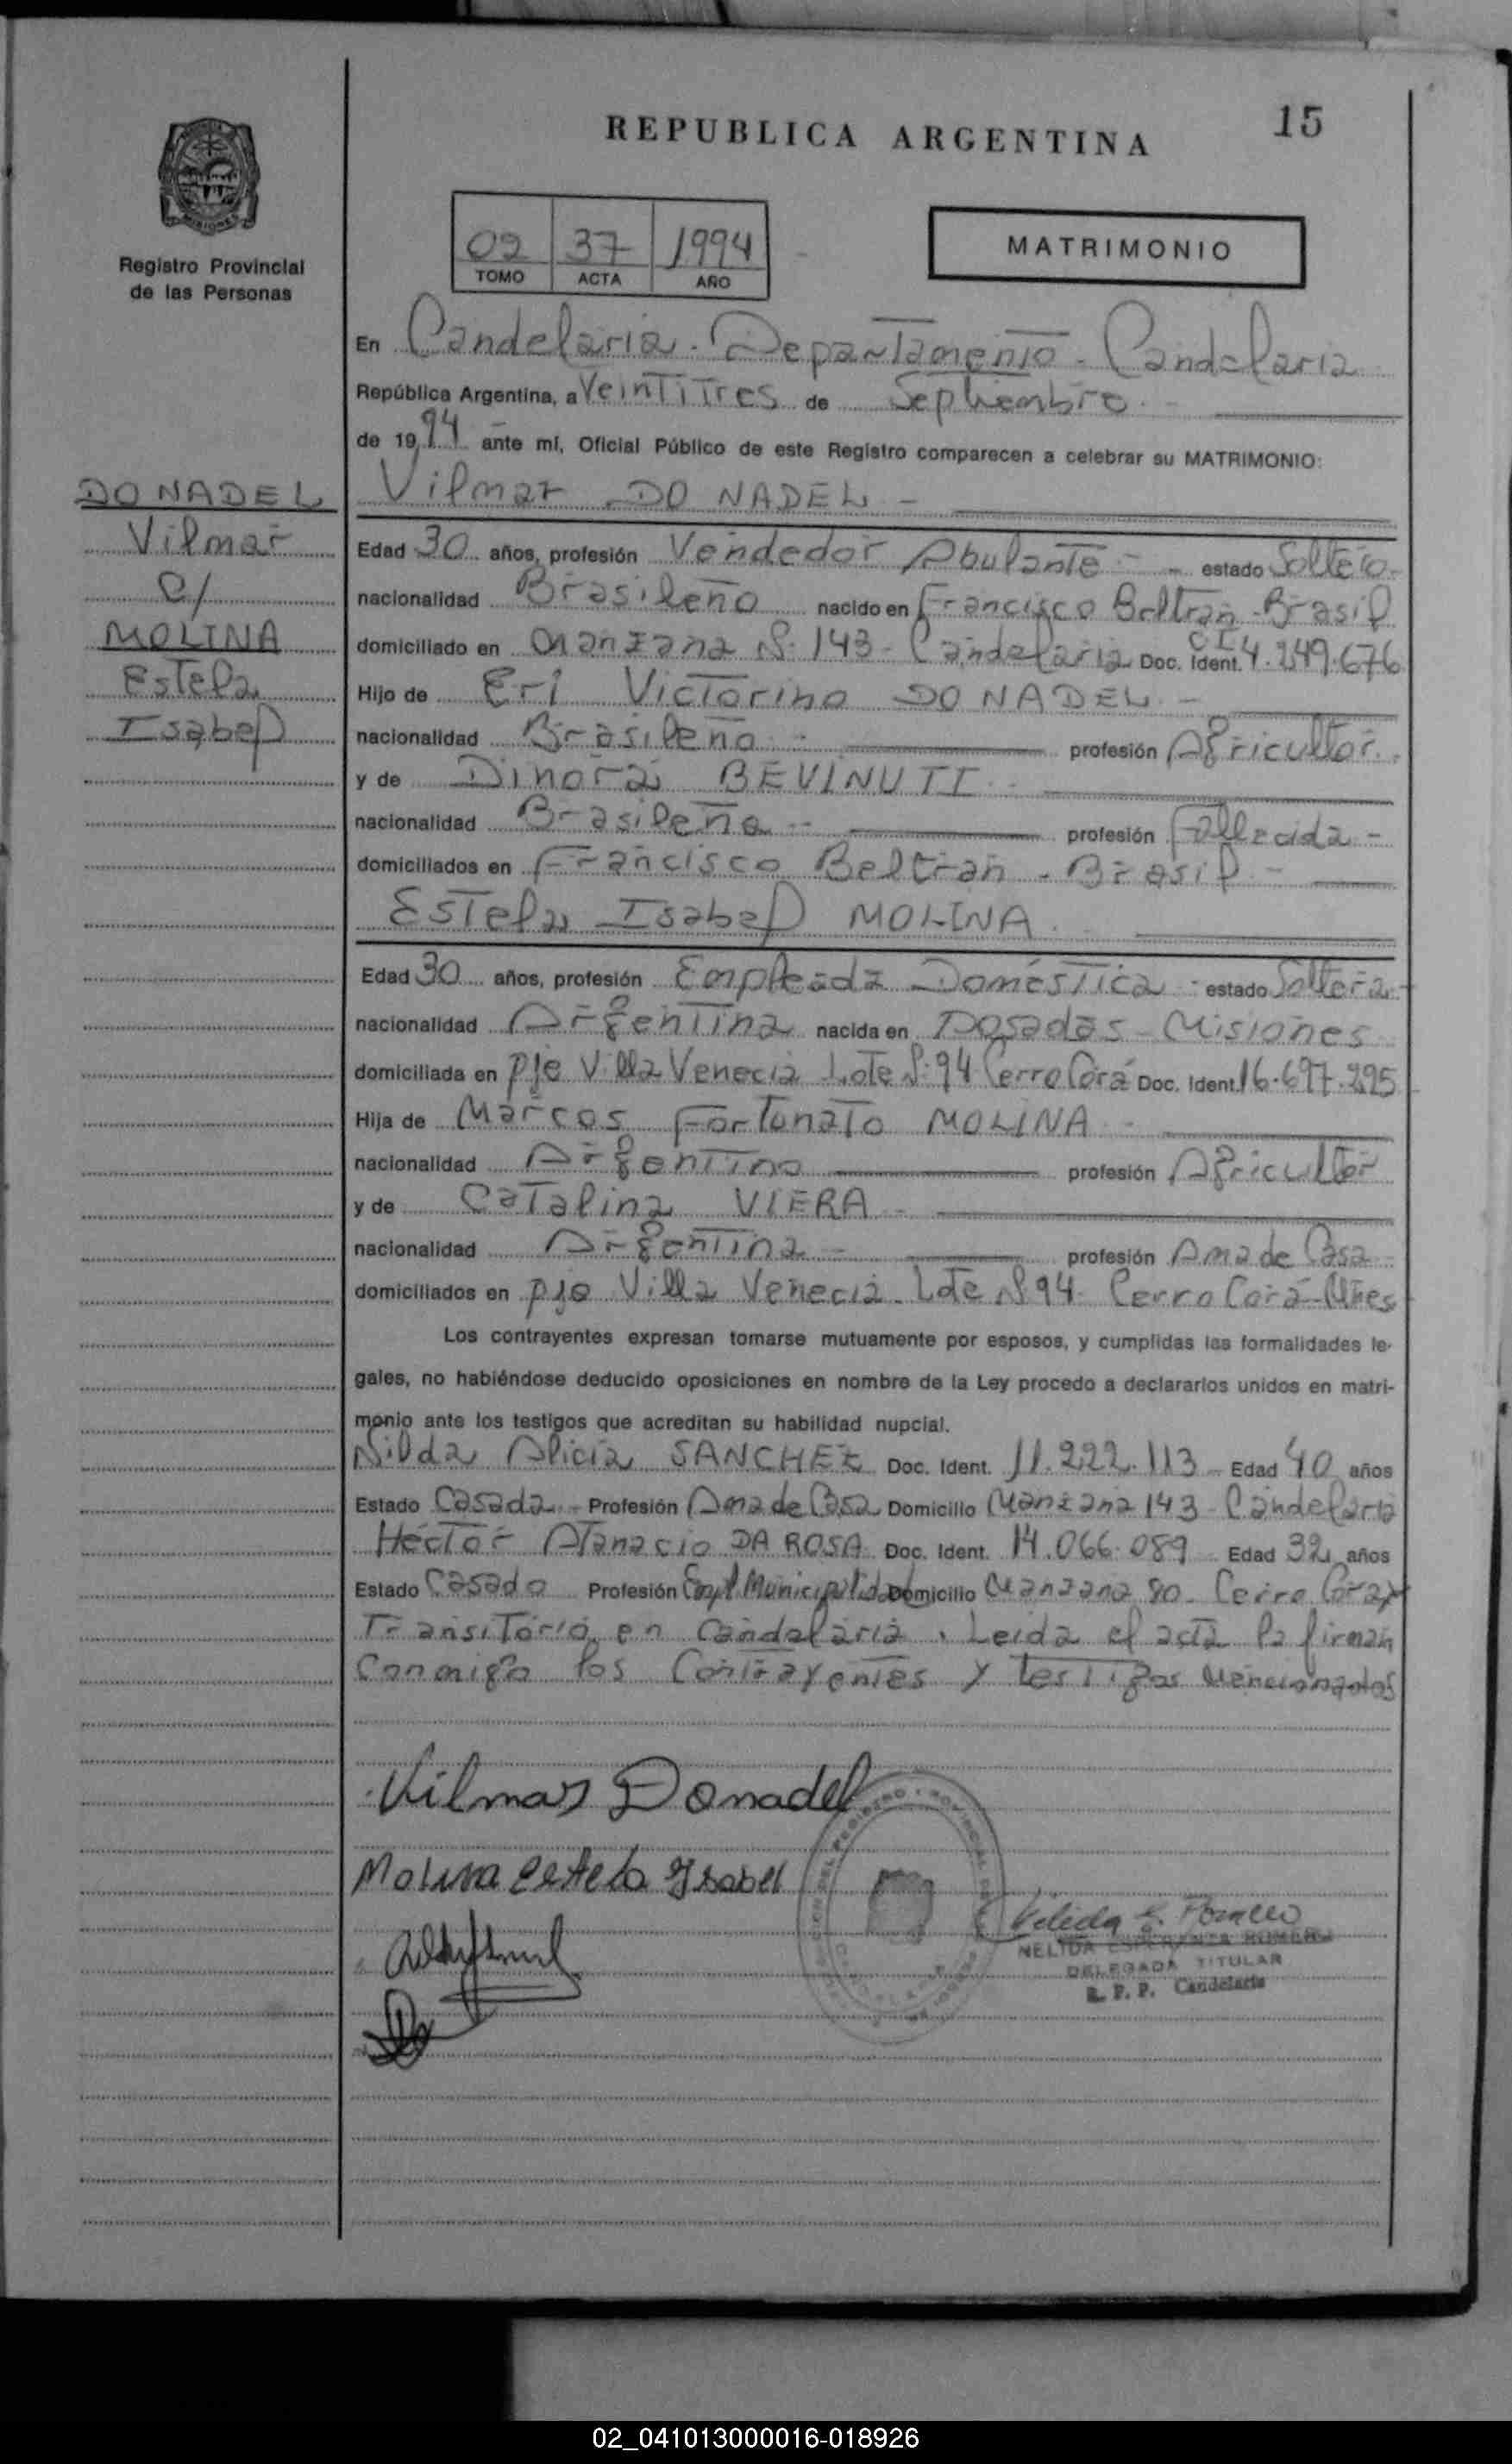 REPUBLICA ARGENTINA
15
MISIONES
Registro Provincial
de las Personas
02 37 1994
TOMO ACTA AÑO
MATRIMONIO
En Candelaria. Departamento - Candelaria
República Argentina, a Veintitres de Septiembre
de 1994 ante mí, Oficial Público de este Registro comparecen a celebrar su MATRIMONIO:
DO NADEL
Vilmar
C/
MOLINA
Estela
Isabel
Vilmar DO NADEL -
Edad 30 años, profesión Vendedor Abulante - estado Soltero -
nacionalidad Brasileño nacido en Francisco Beltran - Brasil
domiciliado en Manzana Nº 143 - Candelaria Doc. Ident. CI 4.249.676
Hijo de Eri Victorino DO NADEL -
nacionalidad Brasileño - profesión Agricultor.
y de Dinora BEVINUTI -
nacionalidad Brasileña - profesión Fallecida -
domiciliados en Francisco Beltran - Brasil -
Estela Isabel MOLINA.
Edad 30 años, profesión Empleada Doméstica - estado Soltera -
nacionalidad Argentina nacida en Posadas - Misiones
domiciliada en pje Villa Venecia Lote Nº 94 Cerro Corá Doc. Ident. 16.697.295
Hija de Marcos Fortunato MOLINA -
nacionalidad Argentino profesión Agricultor
y de Catalina VIERA -
nacionalidad Argentina - profesión Ama de Casa
domiciliados en pje Villa Venecia - Lote Nº 94 - Cerro Corá - Mnes
Los contrayentes expresan tomarse mutuamente por esposos, y cumplidas las formalidades le-
gales, no habiéndose deducido oposiciones en nombre de la Ley procedo a declararlos unidos en matri-
monio ante los testigos que acreditan su habilidad nupcial.
Nilda Alicia SANCHEZ Doc. Ident. 11.222.113 - Edad 40 años
Estado Casada - Profesión Ama de Casa Domicilio Manzana 143 - Candelaria
Héctor Atanacio DA ROSA Doc. Ident. 14.066.089 Edad 32 años
Estado Casado Profesión Empl Municipalidad Domicilio Manzana 80 - Cerro Cora y
Transitorio en Candelaria. Leida el acta la firman
Conmigo los Contrayentes y testigos Mencionados
Vilmar Donadel
Molina Estela Ysabel
NELIDA ESPERANZA ROMERO
DELEGADA TITULAR
R. P. P. Candelaria
02_041013000016-018926